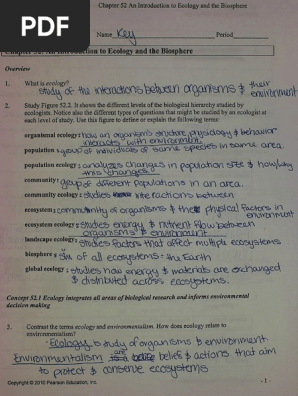 PDF
Chapter 52 An Introduction to Ecology and the Biosphere
Name Key Period
Chapter 52: An Introduction to Ecology and the Biosphere
Overview
1. What is ecology?
study of the interactions between organisms & their
environment
2. Study Figure 52.2. It shows the different levels of the biological hierarchy studied by
ecologists. Notice also the different types of questions that might be studied by an ecologist at
each level of study. Use this figure to define or explain the following terms:
organismal ecology: how an organism's structure, physiology & behavior
interacts with environment
population: group of individuals of same species in same area.
population ecology: analyzes changes in population size & how/why
this changes
community: group of different populations in an area.
community ecology: studies interactions between
ecosystem: community of organisms & the physical factors in
environment
ecosystem ecology: studies energy & nutrient flow between
organisms & environment
landscape ecology: studies factors that affect multiple ecosystems
biosphere: sum of all ecosystems - the Earth
global ecology: studies how energy & materials are exchanged
& distributed across ecosystems.
Concept 52.1 Ecology integrates all areas of biological research and informs environmental
decision making
3. Contrast the terms ecology and environmentalism. How does ecology relate to
environmentalism?
- Ecology is study of organisms & environment
Environmentalism are beliefs & actions that aim
to protect & conserve ecosystems
Copyright © 2010 Pearson Education, Inc.
- 1 -